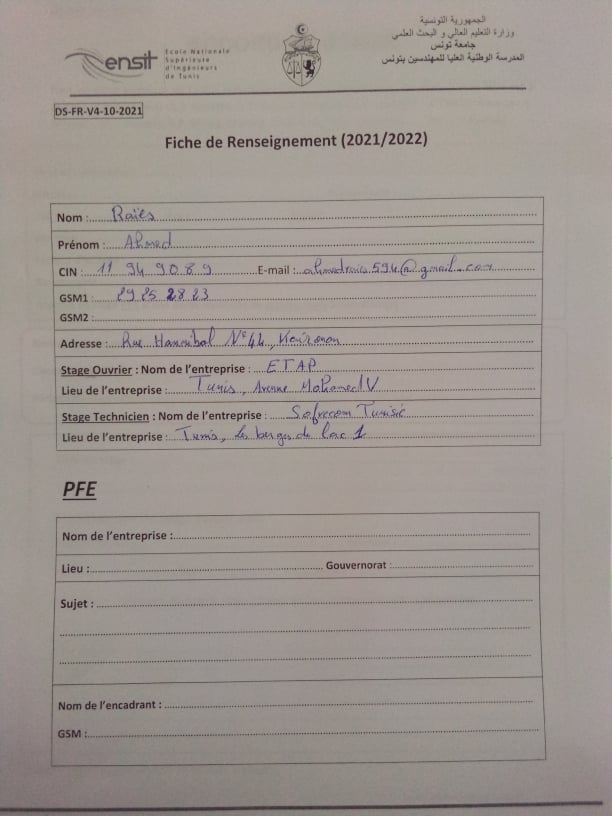 ensit
Ecole Nationale
Supérieure
d'Ingénieurs
de Tunis
الجمهورية التونسية
وزارة التعليم العالي و البحث العلمي
جامعة تونس
المدرسة الوطنية العليا للمهندسين بتونس
DS-FR-V4-10-2021
Fiche de Renseignement (2021/2022)
Nom : Raïes
Prénom : Ahmed
CIN : 11 94 90 89 E-mail : ahmedraies594@gmail.com
GSM1 : 29 25 28 23
GSM2 :
Adresse : Rue Hannibal N°44, Kairouan
Stage Ouvrier : Nom de l'entreprise : ETAP
Lieu de l'entreprise : Tunis, Avenue Mohamed V
Stage Technicien : Nom de l'entreprise : Sofrecom Tunisie
Lieu de l'entreprise : Tunis, les berges du lac 1
PFE
Nom de l'entreprise :
Lieu : Gouvernorat :
Sujet :
Nom de l'encadrant :
GSM :